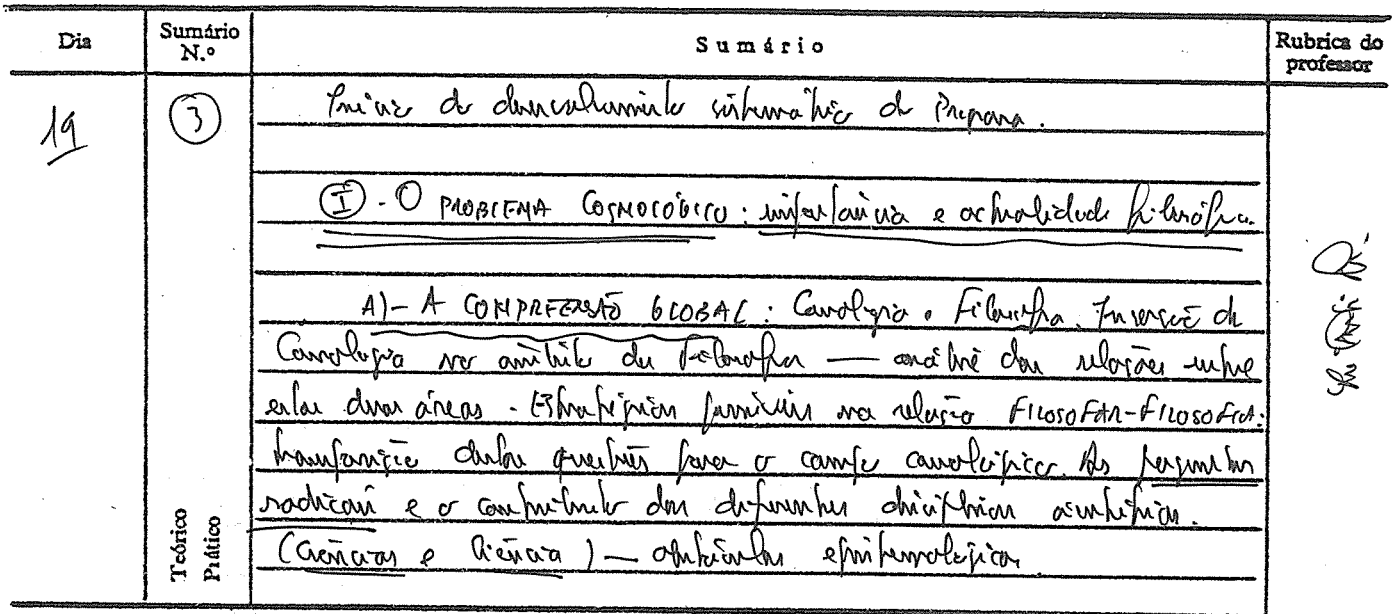 Dia
Sumário N.º
Sumário
Rubrica do professor
19
3
Início do desenvolvimento sistemático do Programa.
I - O PROBLEMA COSMOLÓGICO: importância e actualidade filosófica.
A) - A COMPREENSÃO GLOBAL: Cosmologia e Filosofia. Inserção da
Cosmologia no âmbito da Filosofia — análise das relações entre
estas duas áreas. Estratégias possíveis na relação FILOSOFAR-FILOSOFIA:
transposição destas questões para o campo cosmológico. As perguntas
radicais e o contributo das diferentes disciplinas científicas.
(Ciências e Ciência) — obstáculos epistemológicos
Teórico
Prático